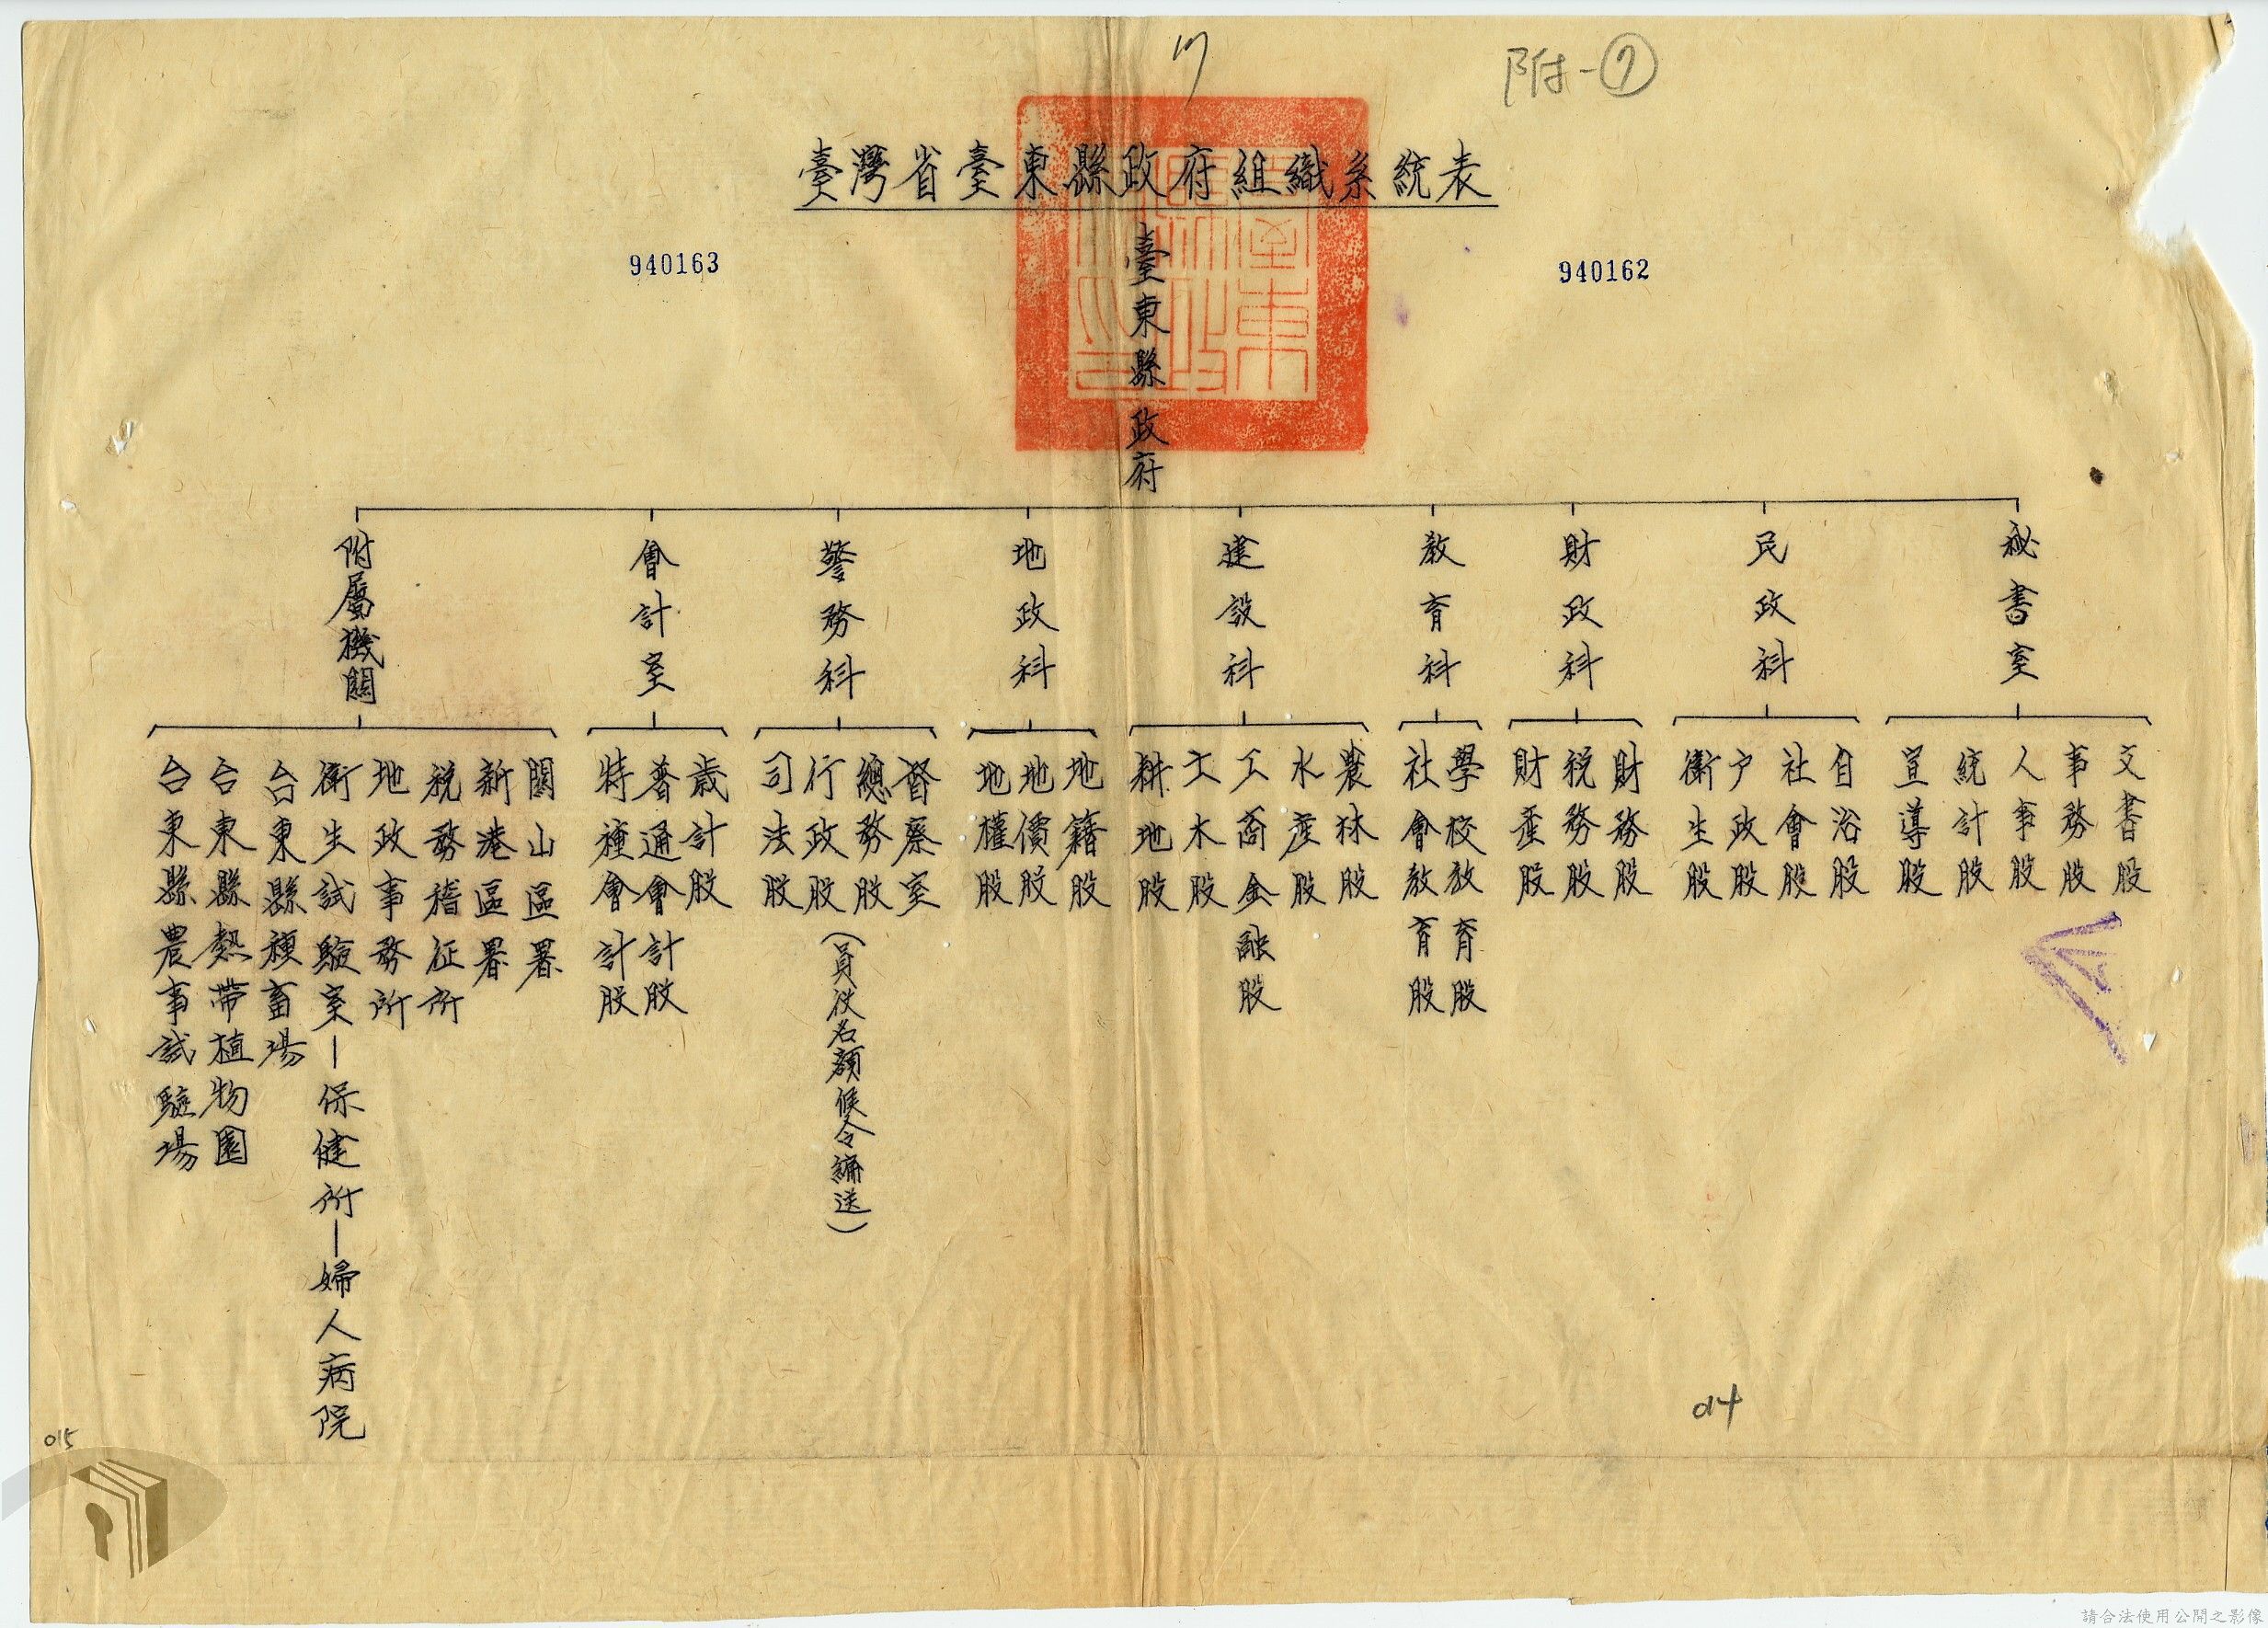 附-⑦
臺灣省臺東縣政府組織系統表
940162
940163
臺東縣政府
秘書室
文書股
事務股
人事股
統計股
宣導股
民政科
自治股
社會股
户政股
衛生股
財政科
財務股
稅務股
財產股
教育科
學校教育股
社會教育股
建設科
農林股
水產股
工商金融股
土木股
耕地股
地政科
地籍股
地價股
地權股
警務科
督察室
總務股
行政股
司法股
(員役名額候令編送)
會計室
歲計股
普通會計股
特種會計股
附屬機關
關山區署
新港區署
稅務稽征所
地政事務所
衛生試驗室—保健所—婦人病院
台東縣種畜場
台東縣熱帶植物園
台東縣農事試驗場
014
015
請合法使用公開之影像